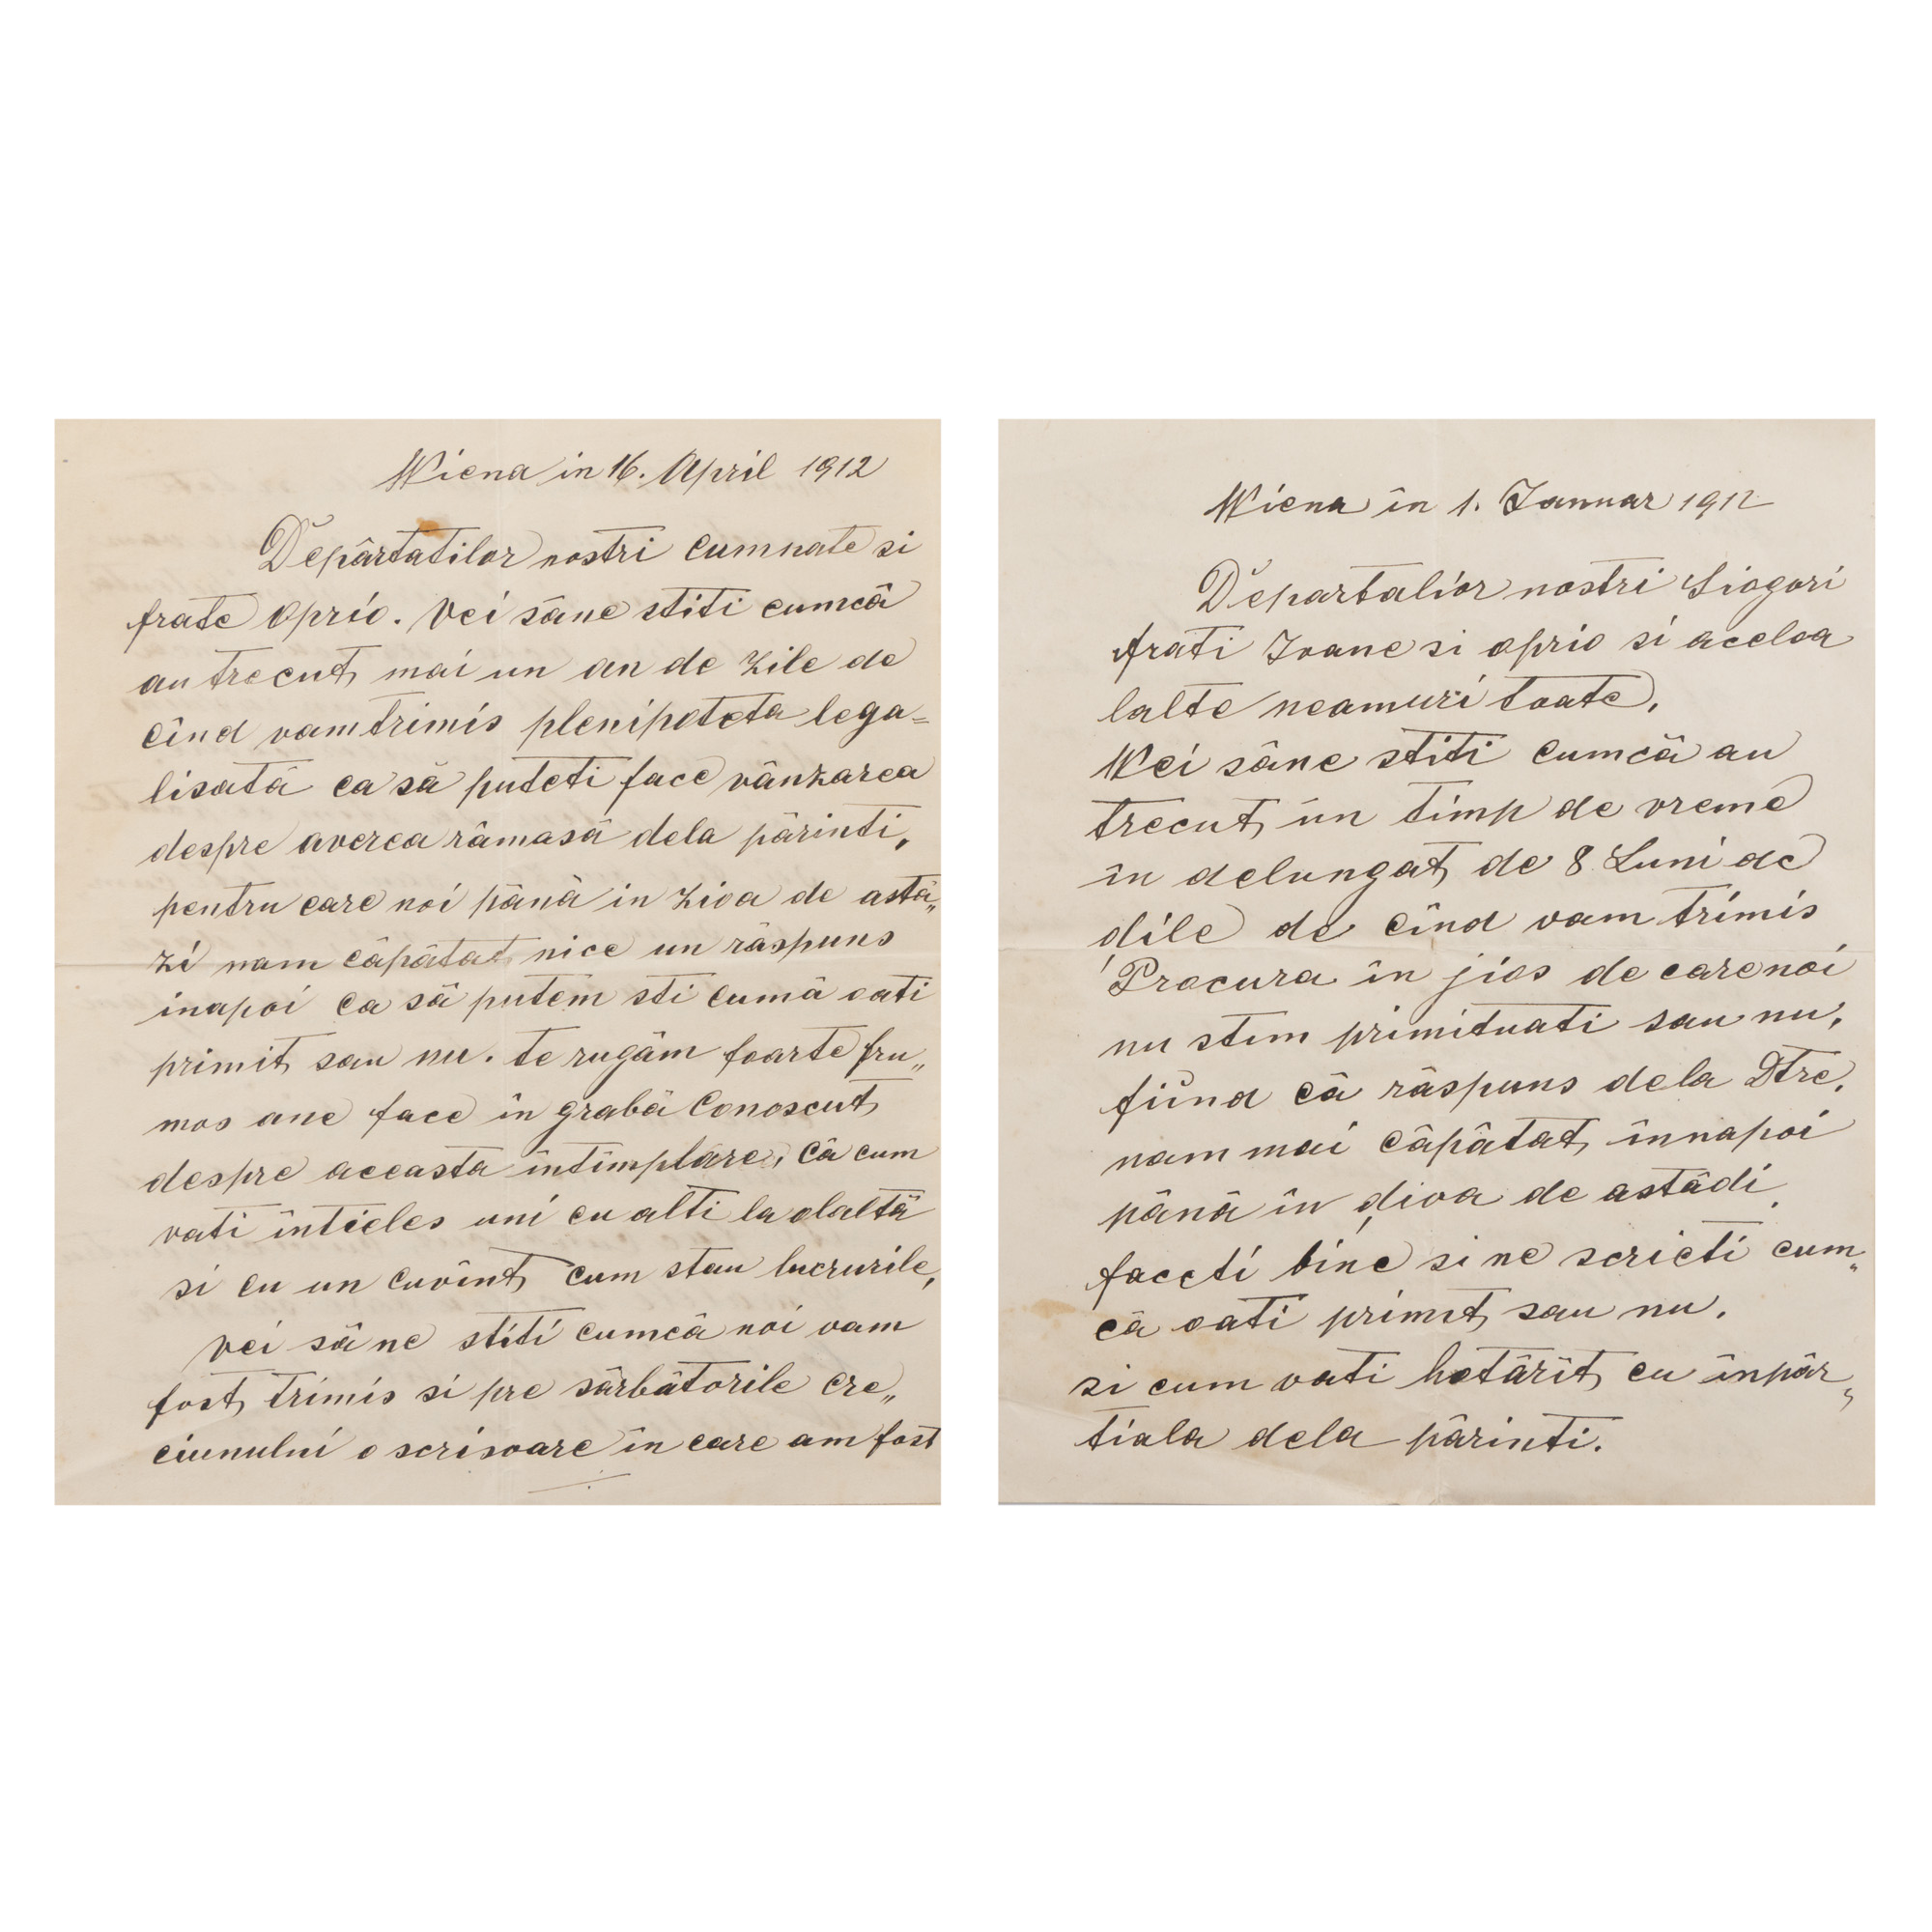 Wiena in 16. April 1912
Depârtatilor nostri cumnate si
frate Oprio. Vei sâne stiti cumcâ
au trecut mai un an de zile de
cînd vam trimis plenipoteta lega=
lisatâ ca sâ puteti face vânzarea
despre averea râmasâ dela pârinti,
pentru care noi pânâ in ziva de astâ„
zi nam câpâtat nice un râspuns
inapoi ca sâ putem sti cumâ oati
primit sau nu. te rugâm foarte fru„
mos ane face în grabâ Conoscut
despre aceasta intimplare, câ cum
vati întieles uni cu alti la olaltâ
si cu un cuvînt cum stau lucrurile,
vei sâne stiti cumcâ noi vam
fost trimis si pre sârbâtorile cre„
ciunului o scrisoare în care am fost
Wiena în 1. Januar 1912
Departalior nostri Siogori
frati Ioane si oprio si aceloa
lalte neamuri toate,
Wei sâne stiti cumcâ au
trecut un timp de vreme
în delungat de 8 Luni de
dile de cînd vam trimis
Procura în jios de care noi
nu stim primituati sau nu,
fiind câ râspuns dela Dtre,
nam mai câpâtat înnapoi
pânâ în diva de astâdi,
faceti bine si ne scrieti cum„
câ oati primit sau nu,
si cum vati hotârît cu înpâr„
tiala dela pârinti.